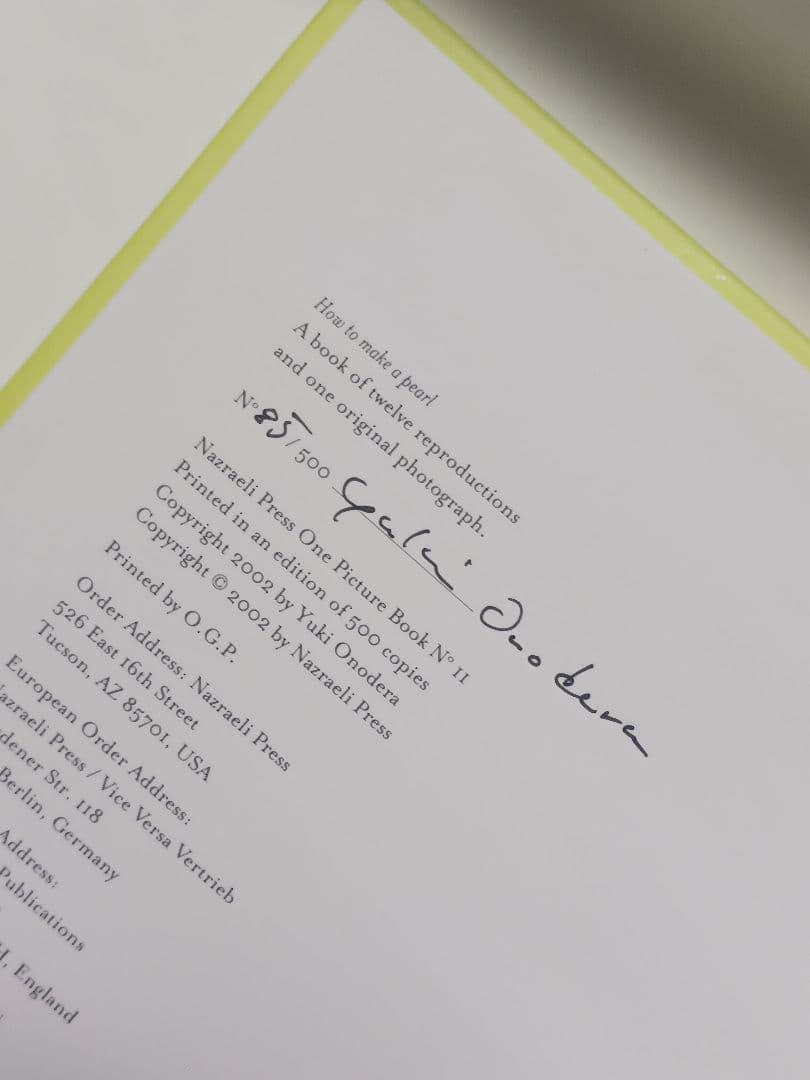 How to make a pearl
A book of twelve reproductions
and one original photograph.
Nº 85/500 Yuki Onodera
Nazraeli Press One Picture Book Nº 11
Printed in an edition of 500 copies
Copyright 2002 by Yuki Onodera
Copyright © 2002 by Nazraeli Press
Printed by O.G.P.
Order Address: Nazraeli Press
526 East 16th Street
Tucson, AZ 85701, USA
European Order Address:
Press / Vice Versa Vertrieb
Str. 118
Berlin, Germany
Address:
Publications
England